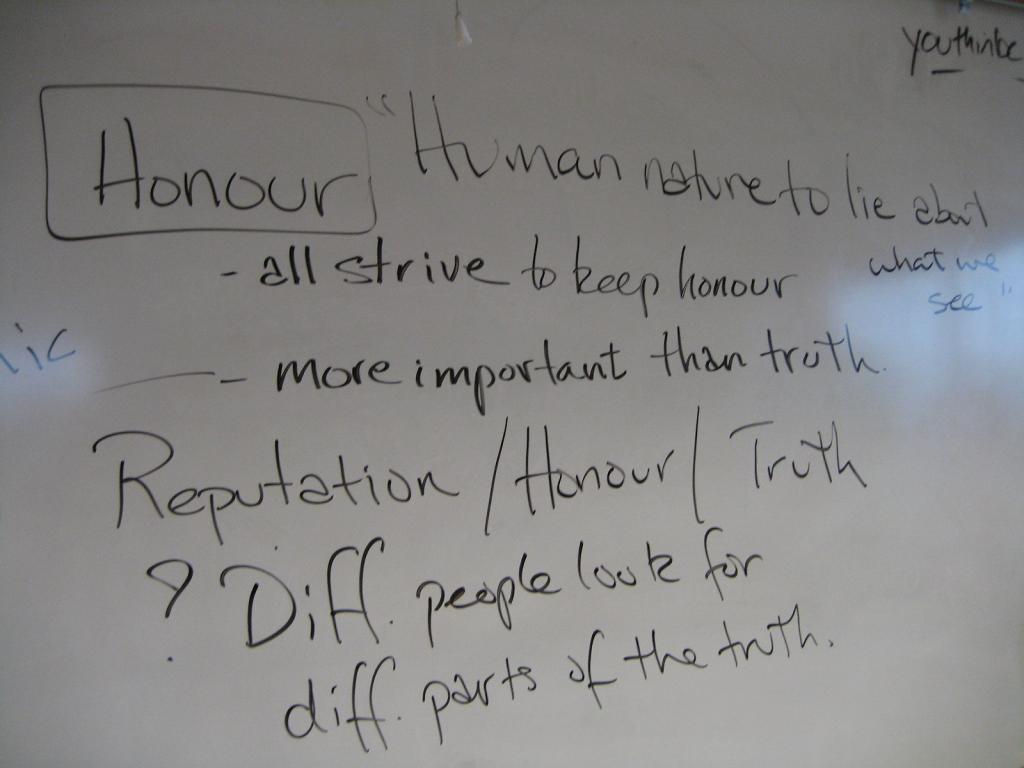 Honour
"Human nature to lie about
what we
see"
- all strive to keep honour
- more important than truth.
Reputation / Honour / Truth
? Diff. people look for
diff. parts of the truth.